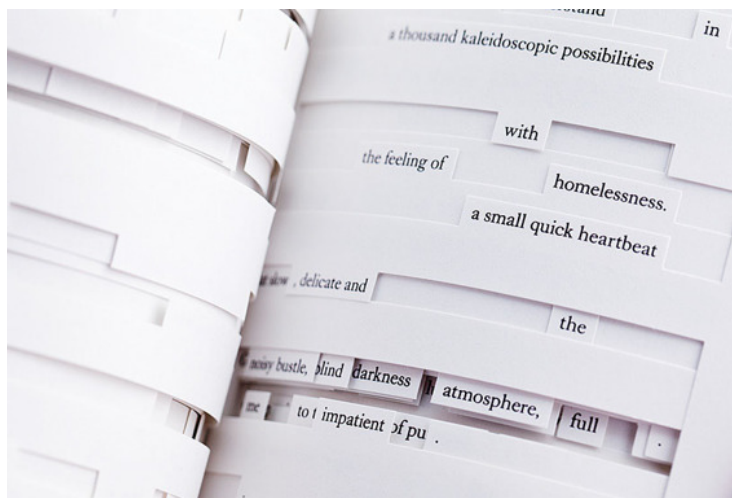 in
a thousand kaleidoscopic possibilities
with
the feeling of
homelessness.
a small quick heartbeat
, delicate and
the
noisy bustle, blind darkness atmosphere, full .
me to t impatient of pu .